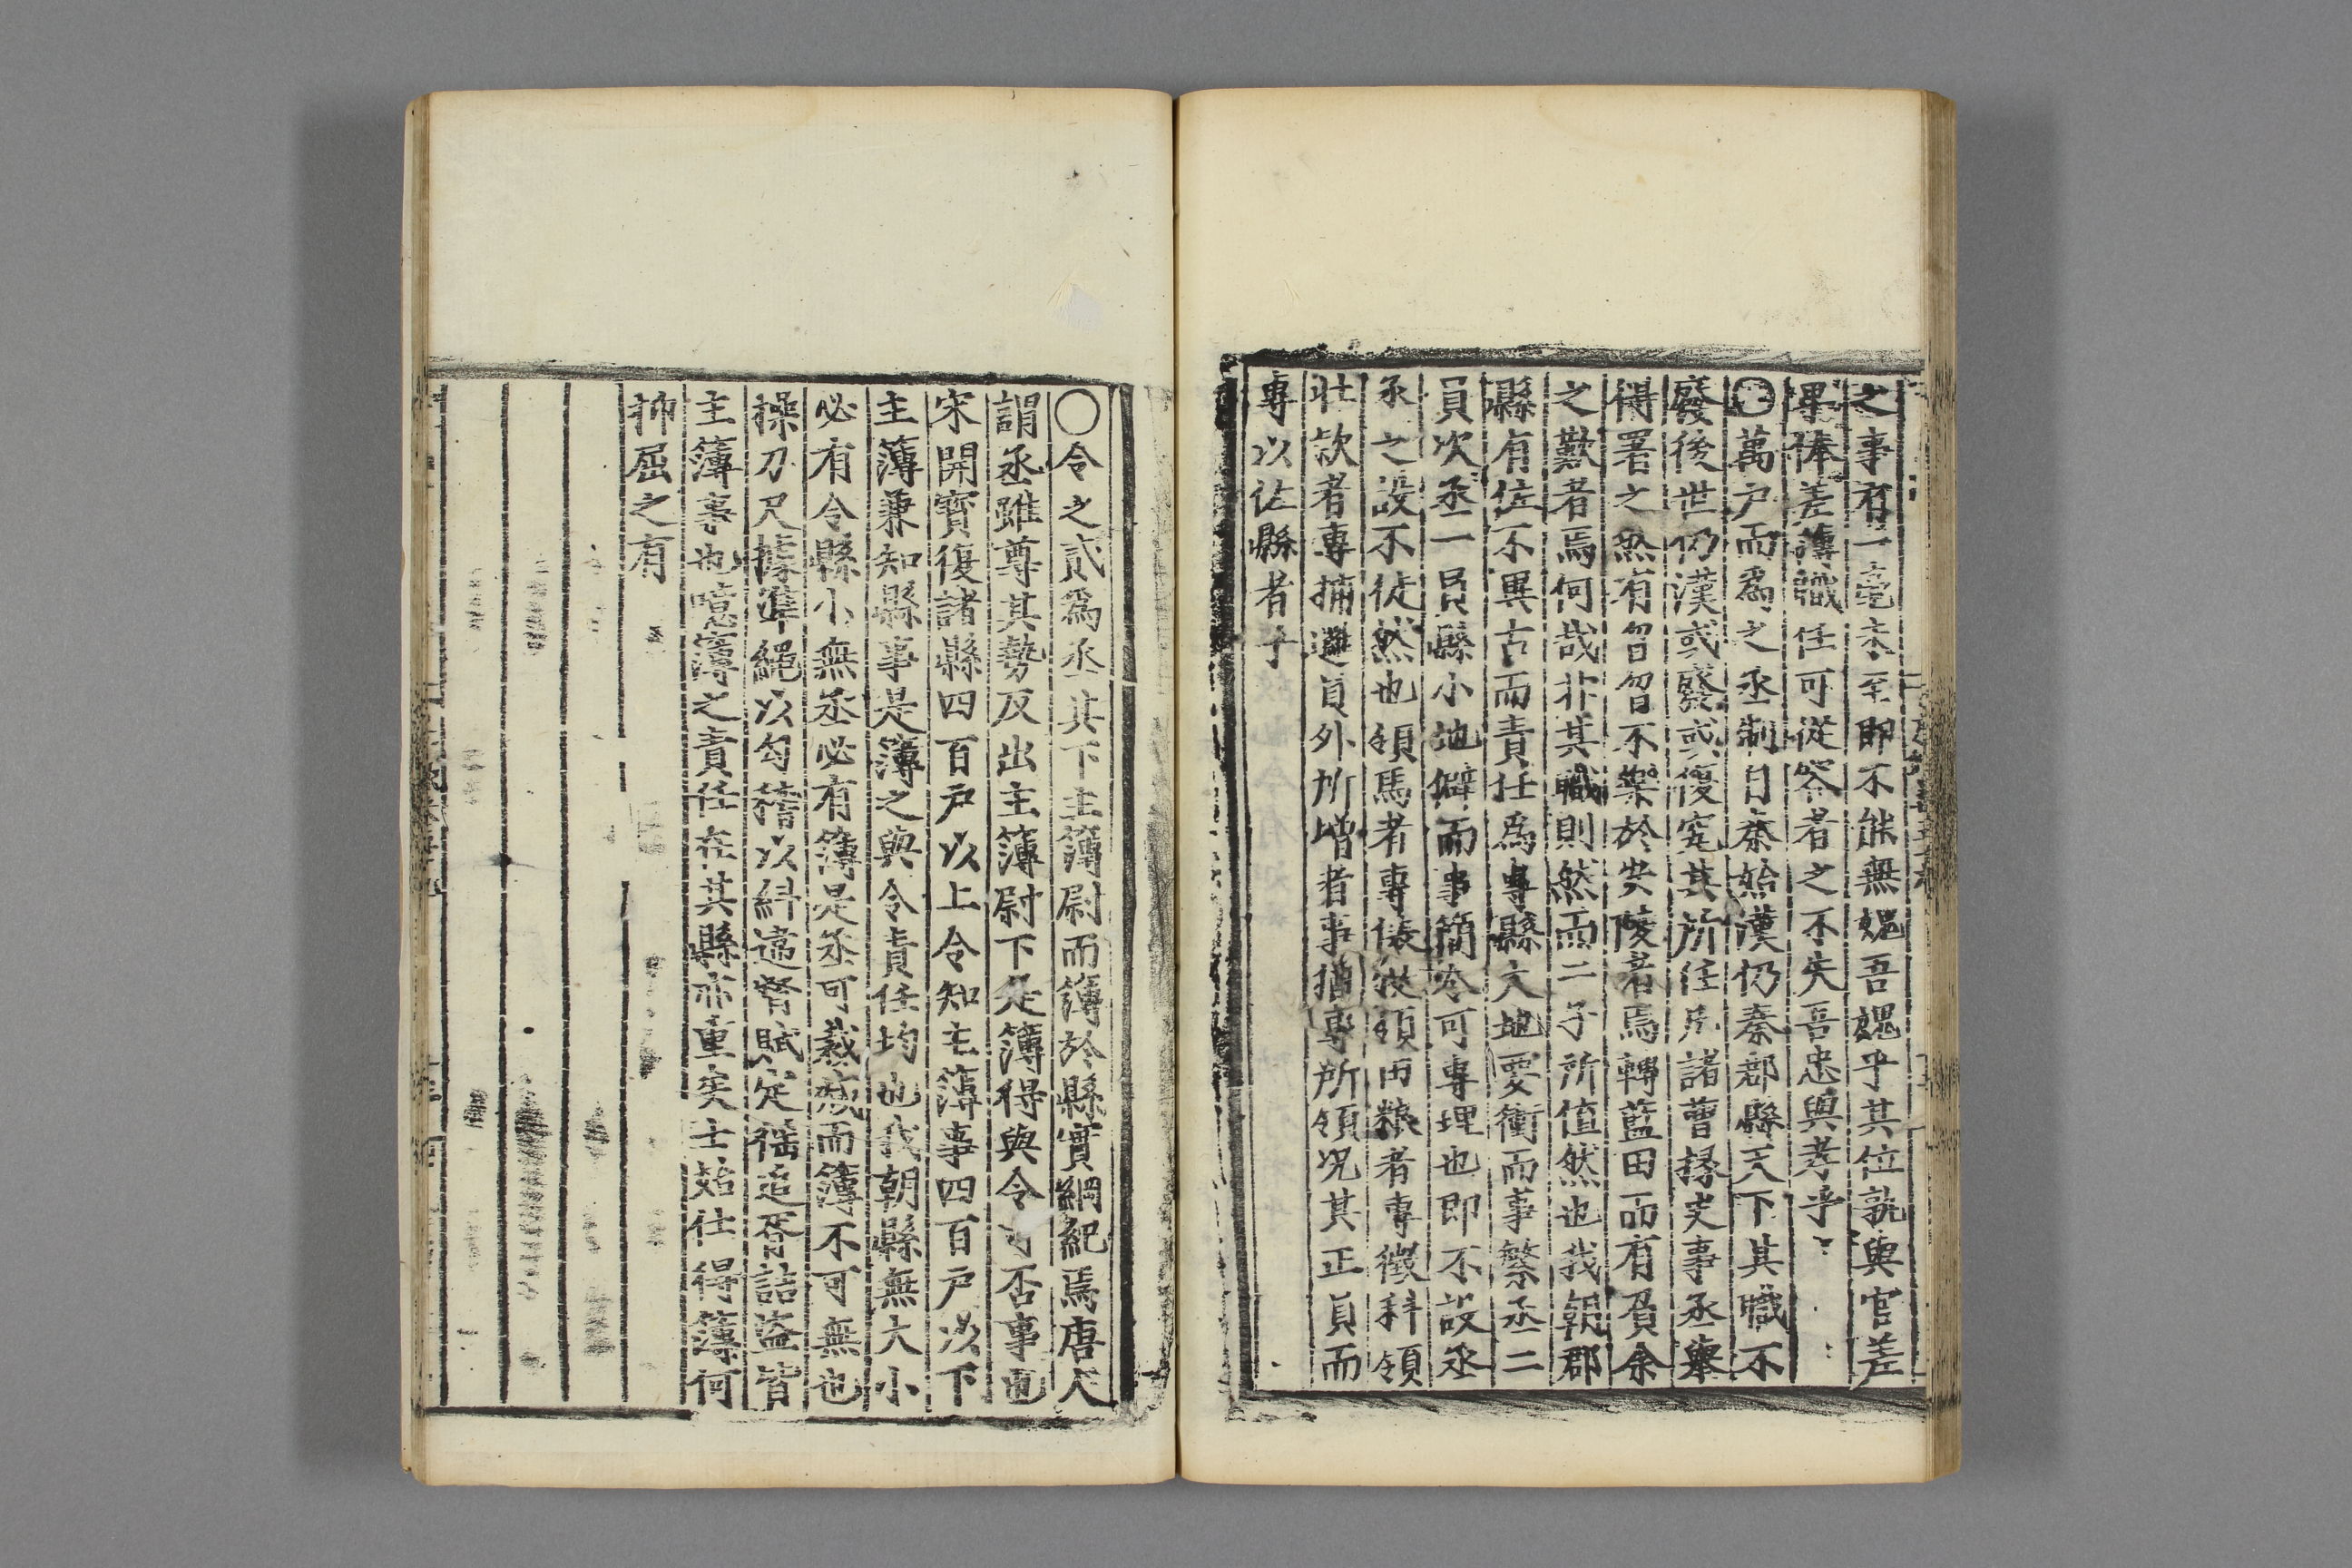 之事有一毫未至即不能無媿吾媿乎其位孰與官差
畢俸差薄職任可從容者之不失吾忠與孝乎
〇萬户而爲之丞制自秦始漢仍秦郡縣天下其職不
廢後世仍漢或廢或復究其所任凡諸曹掾吏事丞舉
得署之然有曾曾不樂於安陵者焉轉藍田而有負余
之歎者焉何哉非其職則然而二子所值然也我朝郡
縣有佐不異古而責任爲專縣大地要衝而事繁丞二
員次丞一員縣小地僻而事簡冷可專理也即不設丞
丞之設不徒然也領馬者專俵從領田粮者專徵科領
壯欵者專捕邏員外所增者事猶專所領况其正員而
專以佐縣者乎
〇令之貳爲丞其下主簿尉而簿於縣實綱紀焉唐人
謂丞雖尊其勢反出主簿尉下是簿得與令可否事也
宋開寳復諸縣四百户以上令知主簿事四百户以下
主簿兼知縣事是簿之與令責任均也我朝縣無大小
必有令縣小無丞必有簿是丞可裁減而簿不可無也
操刀尺據準繩以勾稽以糾違督賦定徭追胥詰盗皆
主簿事也噫簿之責任在其縣亦重矣士始仕得簿何
抑屈之有